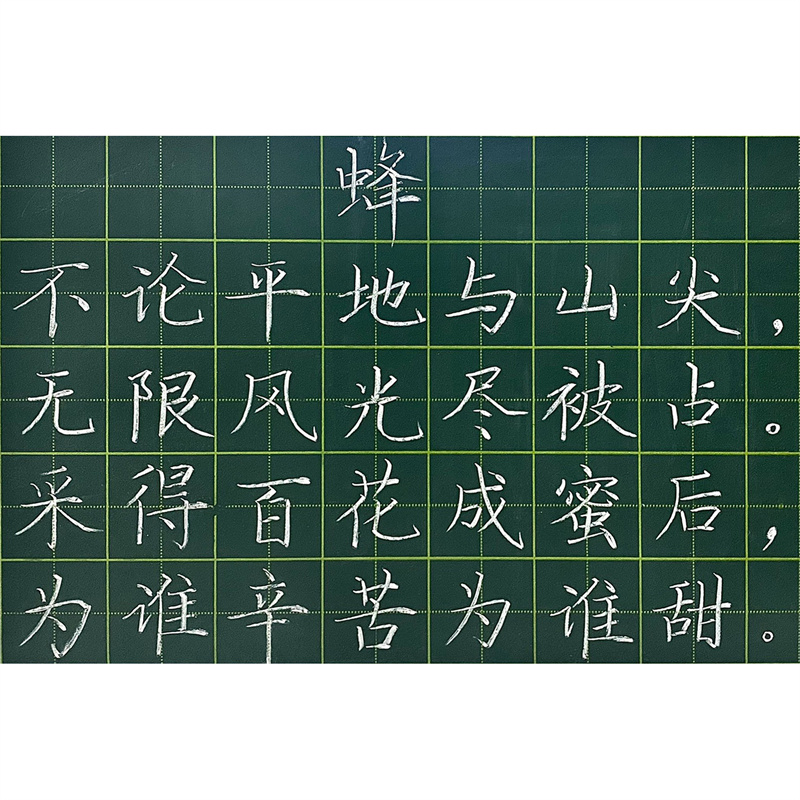 蜂
不论平地与山尖，
无限风光尽被占。
采得百花成蜜后，
为谁辛苦为谁甜。